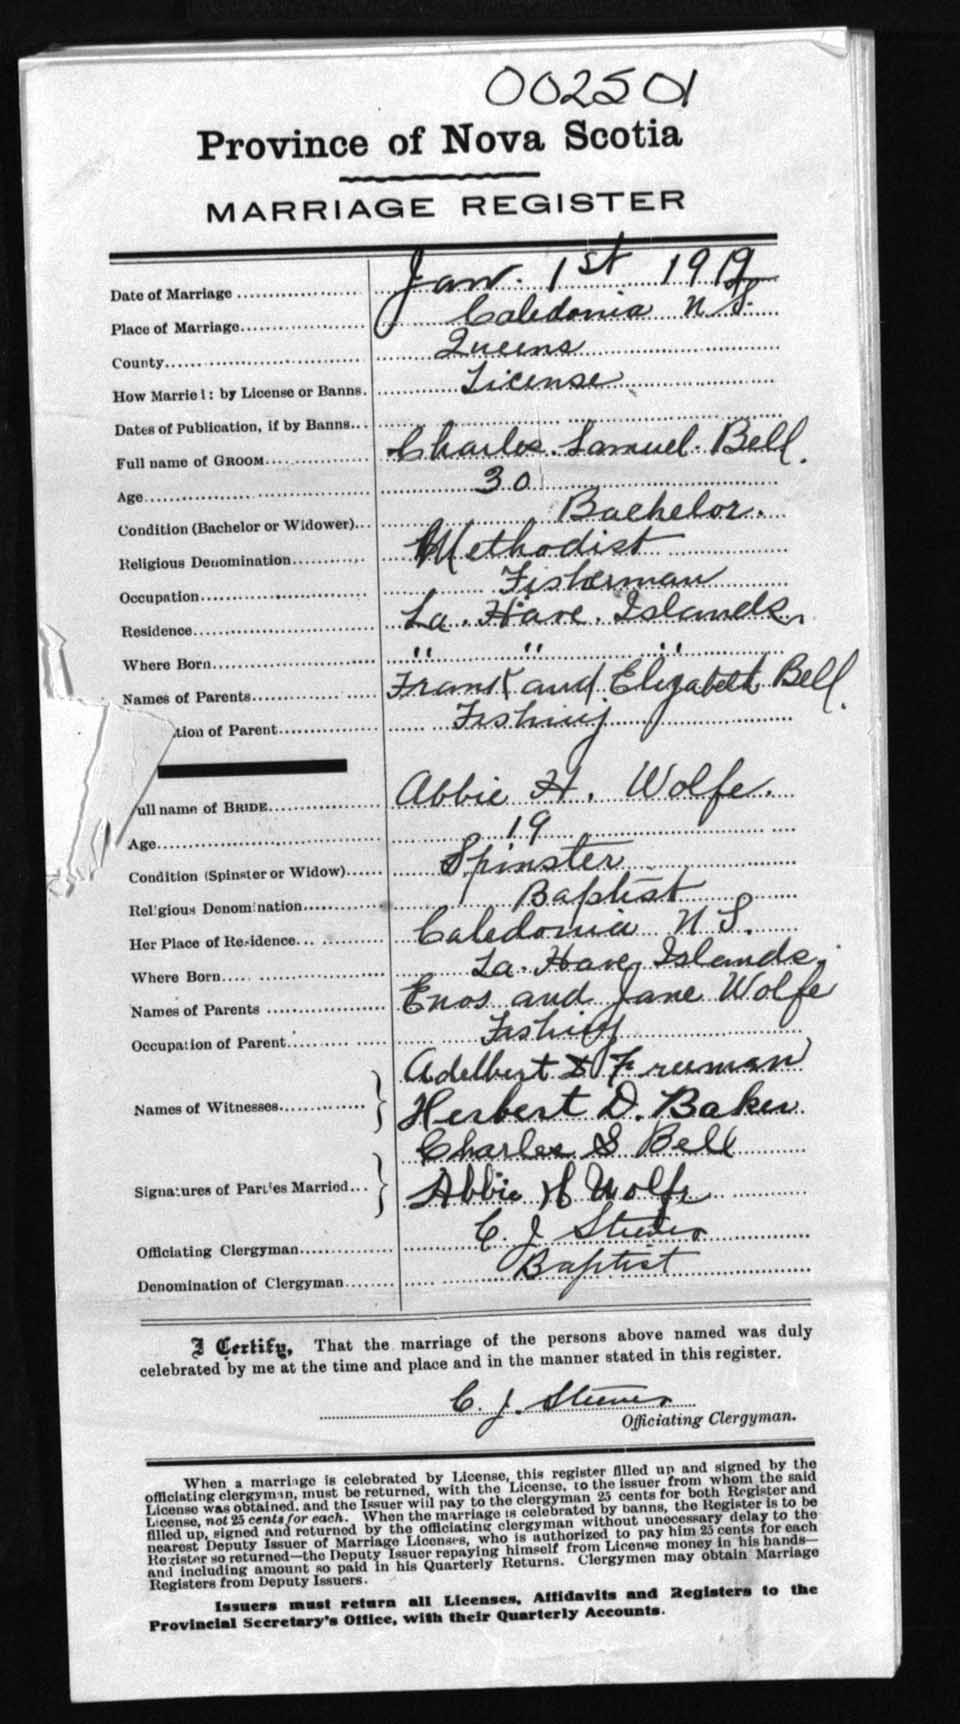 002501
Province of Nova Scotia
MARRIAGE REGISTER
Date of Marriage Jan. 1st 1919
Place of Marriage Caledonia N S.
County Queens
How Marrie1: by License or Banns. License
Dates of Publication, if by Banns
Full name of GROOM Charles. Samuel. Bell.
Age 30
Condition (Bachelor or Widower) Bachelor.
Religious Denomination Methodist
Occupation Fisherman
Residence La. Have. Islands.
Where Born " " "
Names of Parents Frank and Elizabeth Bell.
tion of Parent Fishing
ull name of BRIDE Abbie H. Wolfe.
Age 19
Condition (Spinster or Widow) Spinster
Religious Denomination Baptist
Her Place of Residence Caledonia N S.
Where Born La. Have Islands.
Names of Parents Enos and Jane Wolfe
Occupation of Parent Fishing
Adelbert Freeman
Names of Witnesses Herbert D. Baker
Charles S Bell
Signatures of Parties Married Abbie H Wolfe
Officiating Clergyman C. J. Steeves
Denomination of Clergyman Baptist
I Certify, That the marriage of the persons above named was duly
celebrated by me at the time and place and in the manner stated in this register.
C. J. Steeves
Officiating Clergyman.
When a marriage is celebrated by License, this register filled up and signed by the
officiating clergyman, must be returned, with the License, to the issuer from whom the said
License was obtained, and the Issuer will pay to the clergyman 25 cents for both Register and
License, not 25 cents for each. When the marriage is celebrated by banns, the Register is to be
filled up, signed and returned by the officiating clergyman without unnecessary delay to the
nearest Deputy Issuer of Marriage Licenses, who is authorized to pay him 25 cents for each
Register so returned—the Deputy Issuer repaying himself from License money in his hands—
and including amount so paid in his Quarterly Returns. Clergymen may obtain Marriage
Registers from Deputy Issuers.
Issuers must return all Licenses, Affidavits and Registers to the
Provincial Secretary's Office, with their Quarterly Accounts.